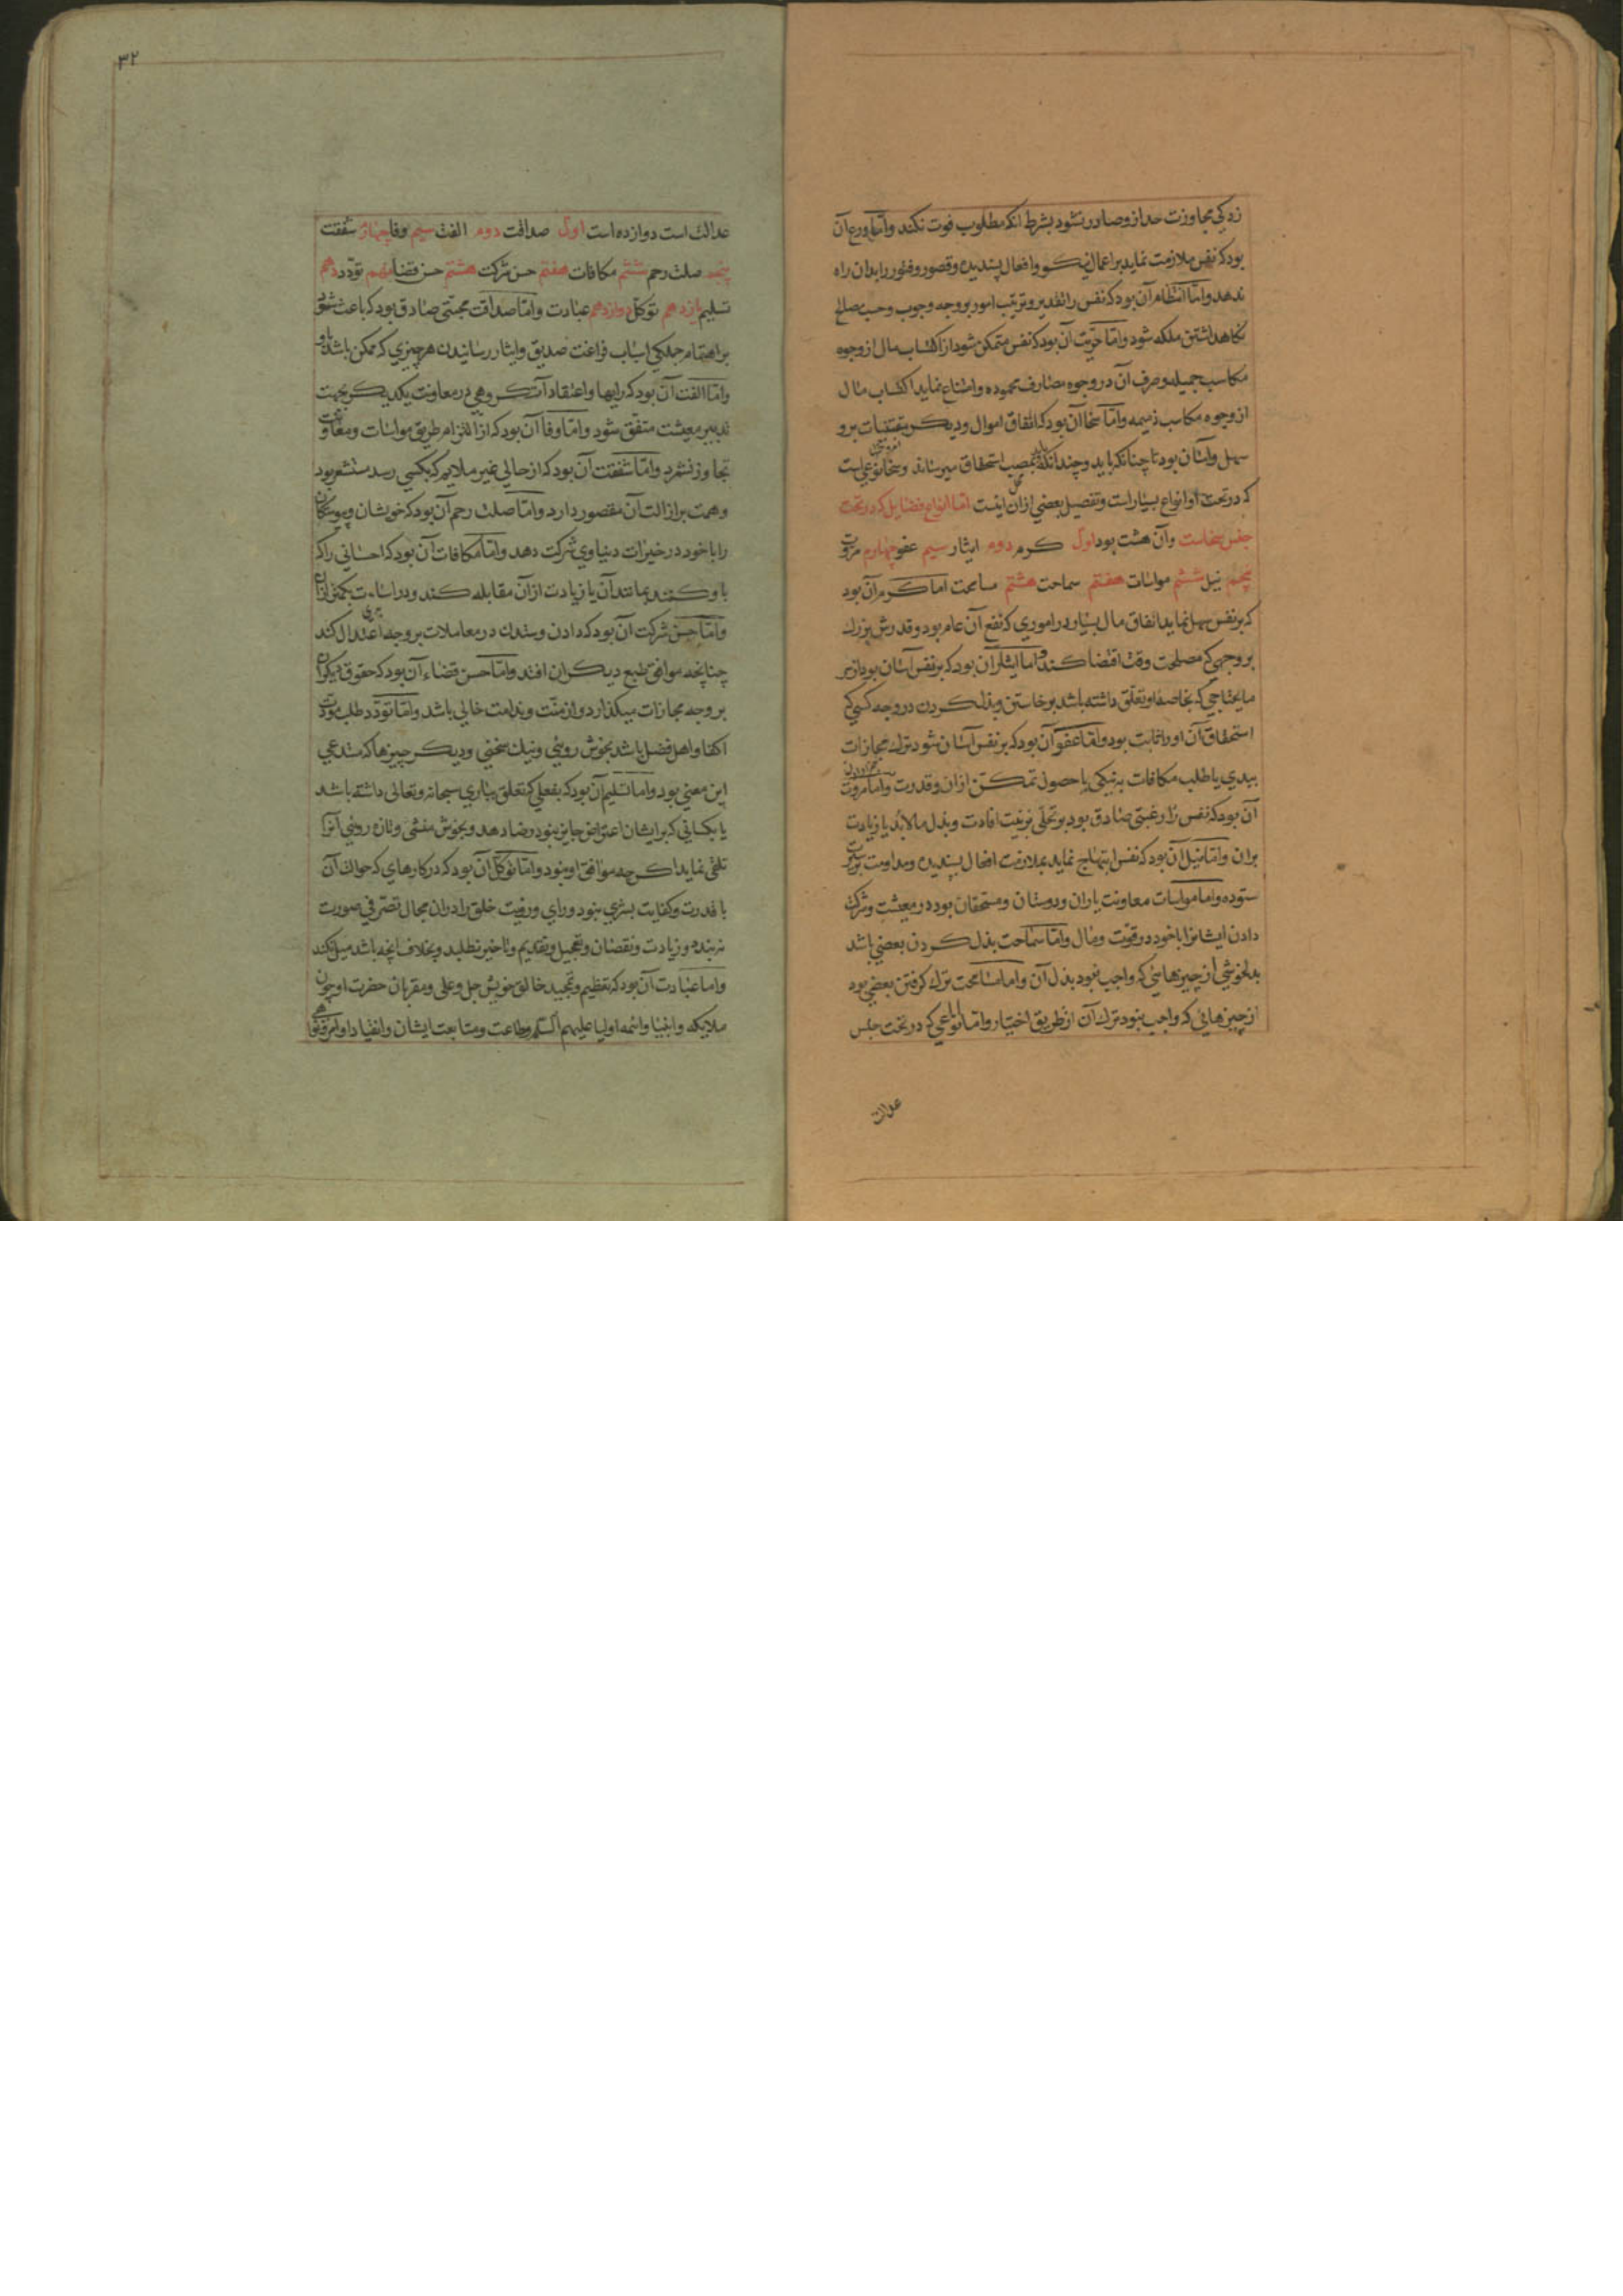 زدگی مجاوزت حد ازو صادر نشود بشرط انکه مطلوب فوت نکند وامّا ورع آن
بود که نفس ملازمت نماید بر اعمال نیکو وافعال پسندیده وقصور وفتور را بدان راه
ندهد وامّا انتظام آن بود که نفس را تقدیر وترتیب امور بر وجه وجوب وحسب مصالح
نکاهداشتن ملکه شود وامّا حرّیت آن بود که نفس متمکن شود از اکتساب مال از وجوه
مکاسب جمیله وصرف آن در وجوه مصارف محموده وامتناع نماید از اکتساب مال
از وجوه مکاسب ذمیمه وامّا سخا آن بود که انفاق اموال ودیکر مقتنیات برو
سهل وآسان بود تا چنانکه باید وچندانکه باید بمصب استحقاق میرساند وسخا نوعی است
که در تحت او انواع بسیار است وتفصیل بعضی ازان اینست امّا انواع فضایل که در تحت
جنس سخاست وآن هشت بود اول کرم دوم ایثار سیم عفو چهارم مروّت
پنجم نیل ششم مواسات هفتم سماحت هشتم مسامحت اما کرم آن بود
که بر نفس سهل نماید انفاق مال بسیار در اموری که نفع آن عام بود وقدرش بزرك
بر وجهی که مصلحت وقت اقتضا کند واما ایثار آن بود که بر نفس آسان بود از سر
مایحتاجی که بخاصهٔ او تعلّق داشته باشد برخاستن وبذل کردن در وجه کسی که
استحقاق آن او را ثابت بود وامّا عفو آن بود که بر نفس آسان شود ترك مجازات
ببدی یا طلب مکافات به نیکی با حصول تمکّن ازان وقدرت وامّا مروت
آن بود که نفس را رغبتی صادق بود بر تحلّی بزینت افادت وبذل مالابد یا زیادت
بران وامّا نیل آن بود که نفس ابتهاج نماید بملازمت افعال پسندیده ومداومت سیرت
ستوده واما مواسات معاونت یاران ودوستان ومستحقان بود در معیشت وشرکت
دادن ایشانرا با خود در قوّت ومال وامّا سماحت بذل کردن بعضی باشد
بدلخوشی از چیزهایئی که واجب نبود بذل آن واما مسامحت ترك کرفتن بعضی بود
از چیزهائی که واجب نبود ترك آن از طریق اختیار وامّا انواعی که در تحت جنس
عدالت
۳۲
عدالت است دوازده است اول صداقت دوم الفت سیم وفا چهارم شفقت
پنجم صلت رحم ششم مکافات هفتم حسن شرکت هشتم حسن قضا نهم تودّد دهم
تسلیم یازدهم توکّل دوازدهم عبادت وامّا صداقت محبّتی صادق بود که باعث شود
بر اهتمام جملکی اسباب فراغت صدیق وایثار رسانیدن هر چیزی که ممکن باشد باو
وامّا الفت آن بود که رایها واعتقادات کروهی در معاونت یکدیکر بجهت
تدبیر معیشت متفق شود وامّا وفا آن بود که از التزام طریق مواسات ومعاونت
تجاوز نشمرد وامّا شفقت آن بود که از حالی غیر ملایم که بکسی رسد مستشعر بود
وهمت بر ازالت آن مقصور دارد وامّا صلت رحم آن بود که خویشان وپیوستکان
را با خود در خیرات دنیاوی شرکت دهد وامّا مکافات آن بود که احسانی را که
باو کنند بمانند آن یا زیادت ازآن مقابله کند ودر اساءت بکمتر ازان
وامّا حسن شرکت آن بود که دادن وستدن در معاملات بر وجه اعتدال کند
چنانچه موافق طبع دیکران افتد وامّا حسن قضاء آن بود که حقوق دیکران
بر وجه مجازات میکذارد واز منّت وندامت خالی باشد وامّا تودّد طلب مودّت
اکفا واهل فضل باشد بخوش روئی ونیك سخنی ودیکر چیزها که مستدعی
این معنی بود واما تسلیم آن بود که بفعلی که تعلق بباری سبحانه وتعالی داشته باشد
یا بکسانی که بر ایشان اعتراض جایز نبود رضا دهد وبخوش منشی وتازه روئی آنرا
تلقی نماید اکرچه موافق او نبود وامّا توکّل آن بود که در کارهای که حوالت آن
با قدرت وکفایت بشری نبود ورای ورویت خلق را دران مجال تصرّفی صورت
نه بندد وزیادت ونقصان وتعجیل وتقدیم وتاخیر نطلبد وبخلاف انچه باشد میل نکند
واما عبادت آن بود که تعظیم وتمجید خالق خویش جل وعلی ومقربان حضرت او چون
ملایکه وانبیا وائمه واولیا علیهم السّلم وطاعت ومتابعت ایشان وانقیاد اوامر ونواهی